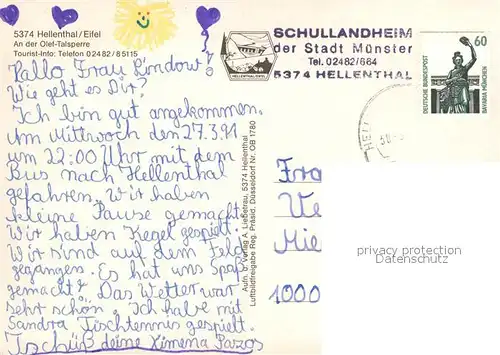 5374 Hellenthal / Eifel
An der Olef-Talsperre
Tourist-Info: Telefon 0 24 82 / 8 51 15
Hallo Frau Rindow!
Wie geht es Dir?
Ich bin gut angekommen.
Am Mittwoch den 27.3.91
um 22:00 Uhr mit dem
Bus nach Hellenthal
gefahren. Wir haben
kleine Pause gemacht.
Wir haben Kegel gespielt.
Wir sind auf dem Feld
gegangen. Es hat uns Spaß
gemacht. Das Wetter war
sehr schön. Ich habe mit
Sandra Tischtennis gespielt.
Tschüß deine Ximena Pazos
Aufn. u. Verlag A. Ließetrau, 5374 Hellenthal
Luftbildfreigabe Reg. Präsid. Düsseldorf Nr. OB 1780
HELLENTHAL/EIFEL
SCHULLANDHEIM
der Stadt Münster
Tel. 02482/664
5374 HELLENTHAL
60
DEUTSCHE BUNDESPOST
BAVARIA MÜNCHEN
HELL
Fra
We
Mie
1000
privacy protection
Datenschutz